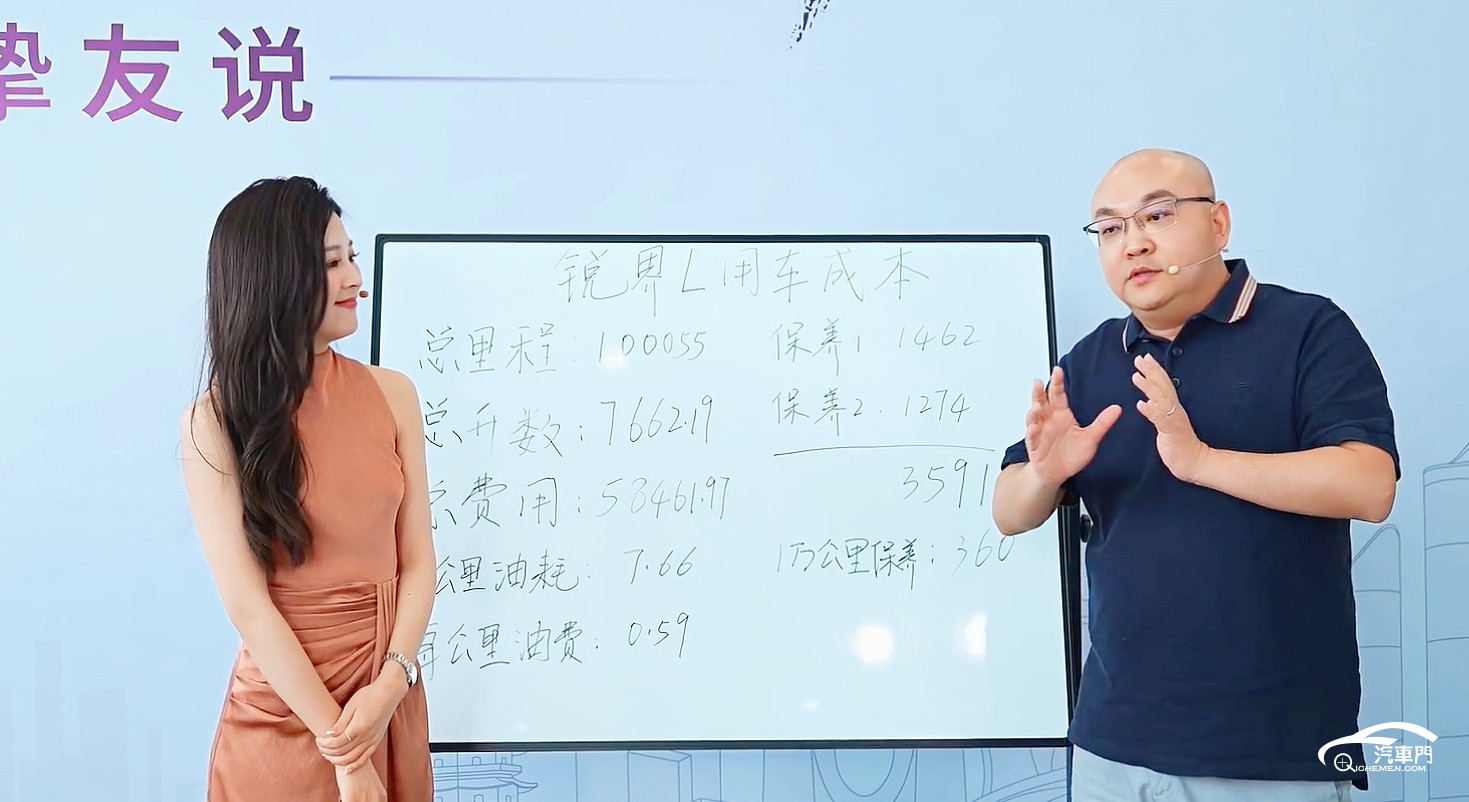 挚友说
锐界L用车成本
总里程：100055
总升数：7662.19
总费用：58461.97
公里油耗：7.66
每公里油费：0.59
保养1 1462
保养2. 1274
3591
1万公里保养：360
汽車門
QICHEMEN.COM